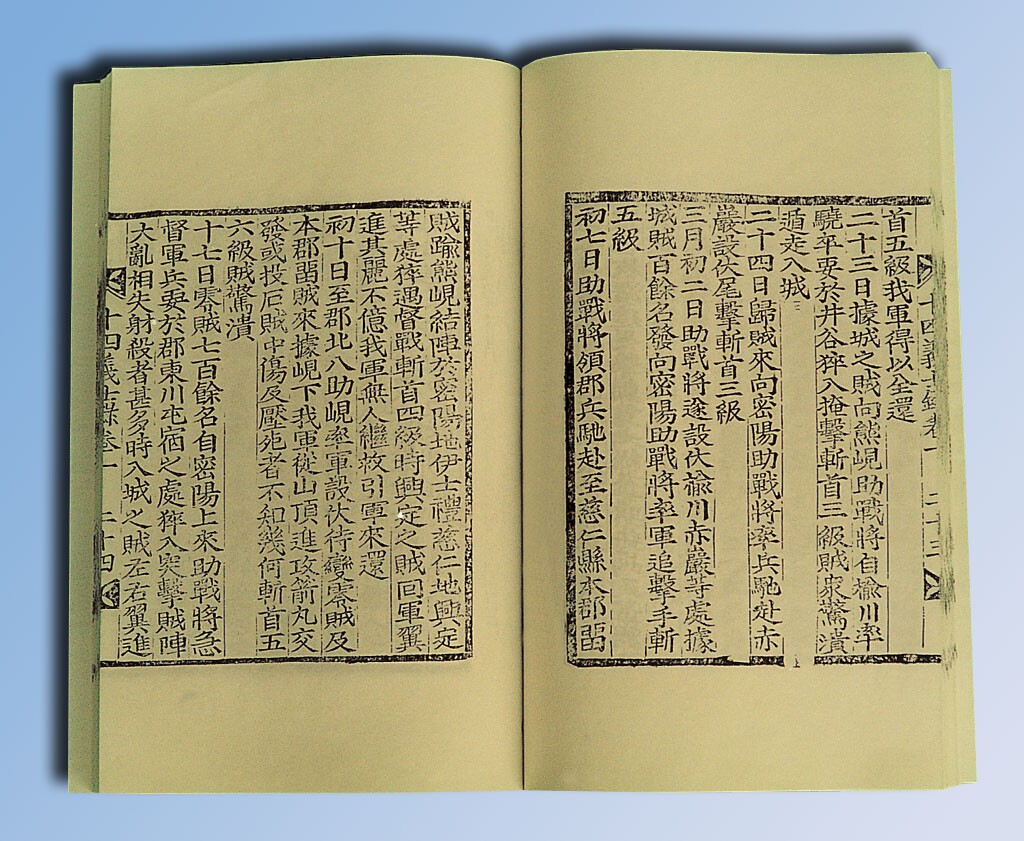 十四義士錄卷一 二十三
首五級我軍得以全還
二十三日據城之賊向熊峴助戰將自楡川率
驍卒要於井谷猝入掩擊斬首三級賊衆驚潰
遁走入城
二十四日歸賊來向密陽助戰將率兵馳赴赤
巖設伏尾擊斬首三級
三月初二日助戰將遂設伏楡川赤巖等處據
城賊百餘名發向密陽助戰將率軍追擊手斬
五級
初七日助戰將領郡兵馳赴至慈仁縣本郡留
賊踰熊峴結陣於密陽地伊士禮慈仁地興定
等處猝遇督戰斬首四級時興定之賊回軍翼
進其麗不億我軍無人繼救引軍來還
初十日至郡北八助峴率軍設伏待變零賊及
本郡留賊來據峴下我軍從山頂進攻箭丸交
發或投石賊中傷及壓死者不知幾何斬首五
六級賊驚潰
十七日零賊七百餘名自密陽上來助戰將急
督軍兵要於郡東川屯宿之處猝入突擊賊陣
大亂相失射殺者甚多時入城之賊左右翼進
十四義士錄卷一 二十四